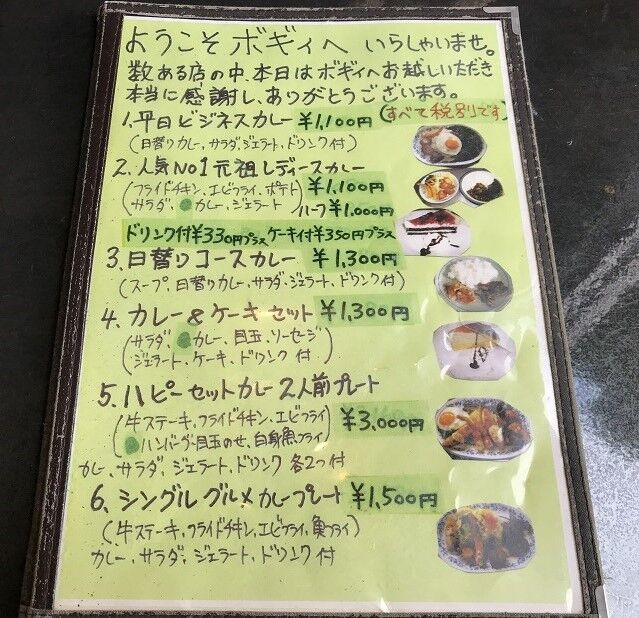 ようこそ ボギィへ いらしゃいませ。
数ある店の中、本日はボギィへお越しいただき
本当に感謝し、ありがとうございます。
1.平日ビジネスカレー ¥1,100円 (すべて税別です)
(日替りカレー、サラダ、ジェラート、ドリンク付)
2.人気No1元祖レディースカレー
(フライドチキン、エビフライ、ポテト ¥1,100円
サラダ、カレー、ジェラート) ハーフ ¥1,000円
ドリンク付¥330円プラス ケーキ付¥350円プラス
3、日替りコースカレー ¥1,300円
(スープ、日替りカレー、サラダ、ジェラート、ドリンク付)
4、カレー&ケーキセット ¥1,300円
(サラダ、カレー、目玉、ソーセージ
ジェラート、ケーキ、ドリンク付)
5、ハピーセットカレー2人前プレート
(牛ステーキ、フライドチキン、エビフライ ¥3,000円
ハンバーグ目玉のせ、白身魚フライ)
カレー、サラダ、ジェラート、ドリンク 各2つ付
6、シングルグルメカレープレート ¥1,500円
(牛ステーキ、フライドチキン、エビフライ、魚フライ)
カレー、サラダ、ジェラート、ドリンク付